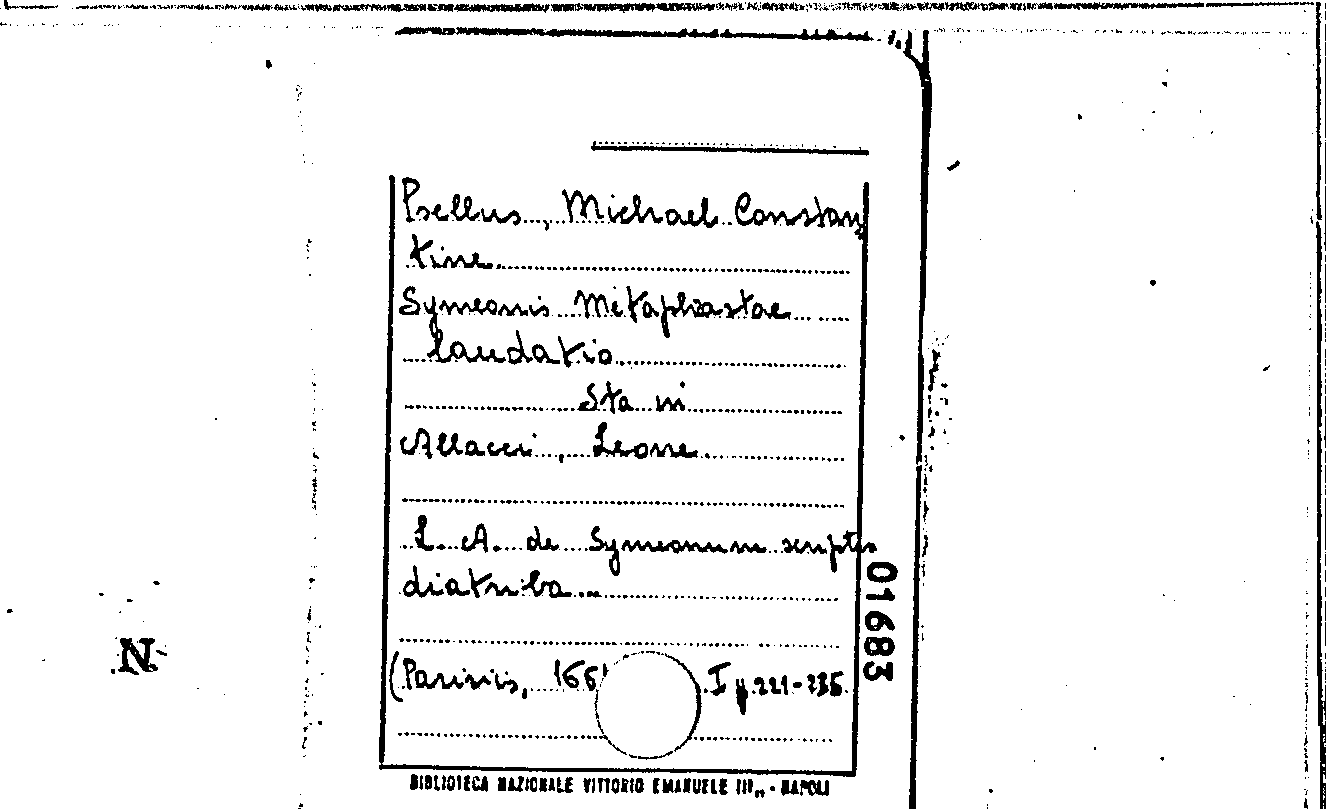 Psellus, Michael Constan
tine
Symeonis Metaphrastae
laudatio
Sta in
Allacci, Leone
L. A. de Symeonum scriptis
diatriba...
(Parisiis, 166 I p. 221-
BIBLIOTECA NAZIONALE VITTORIO EMANUELE III,, - NAPOLI
01683
N